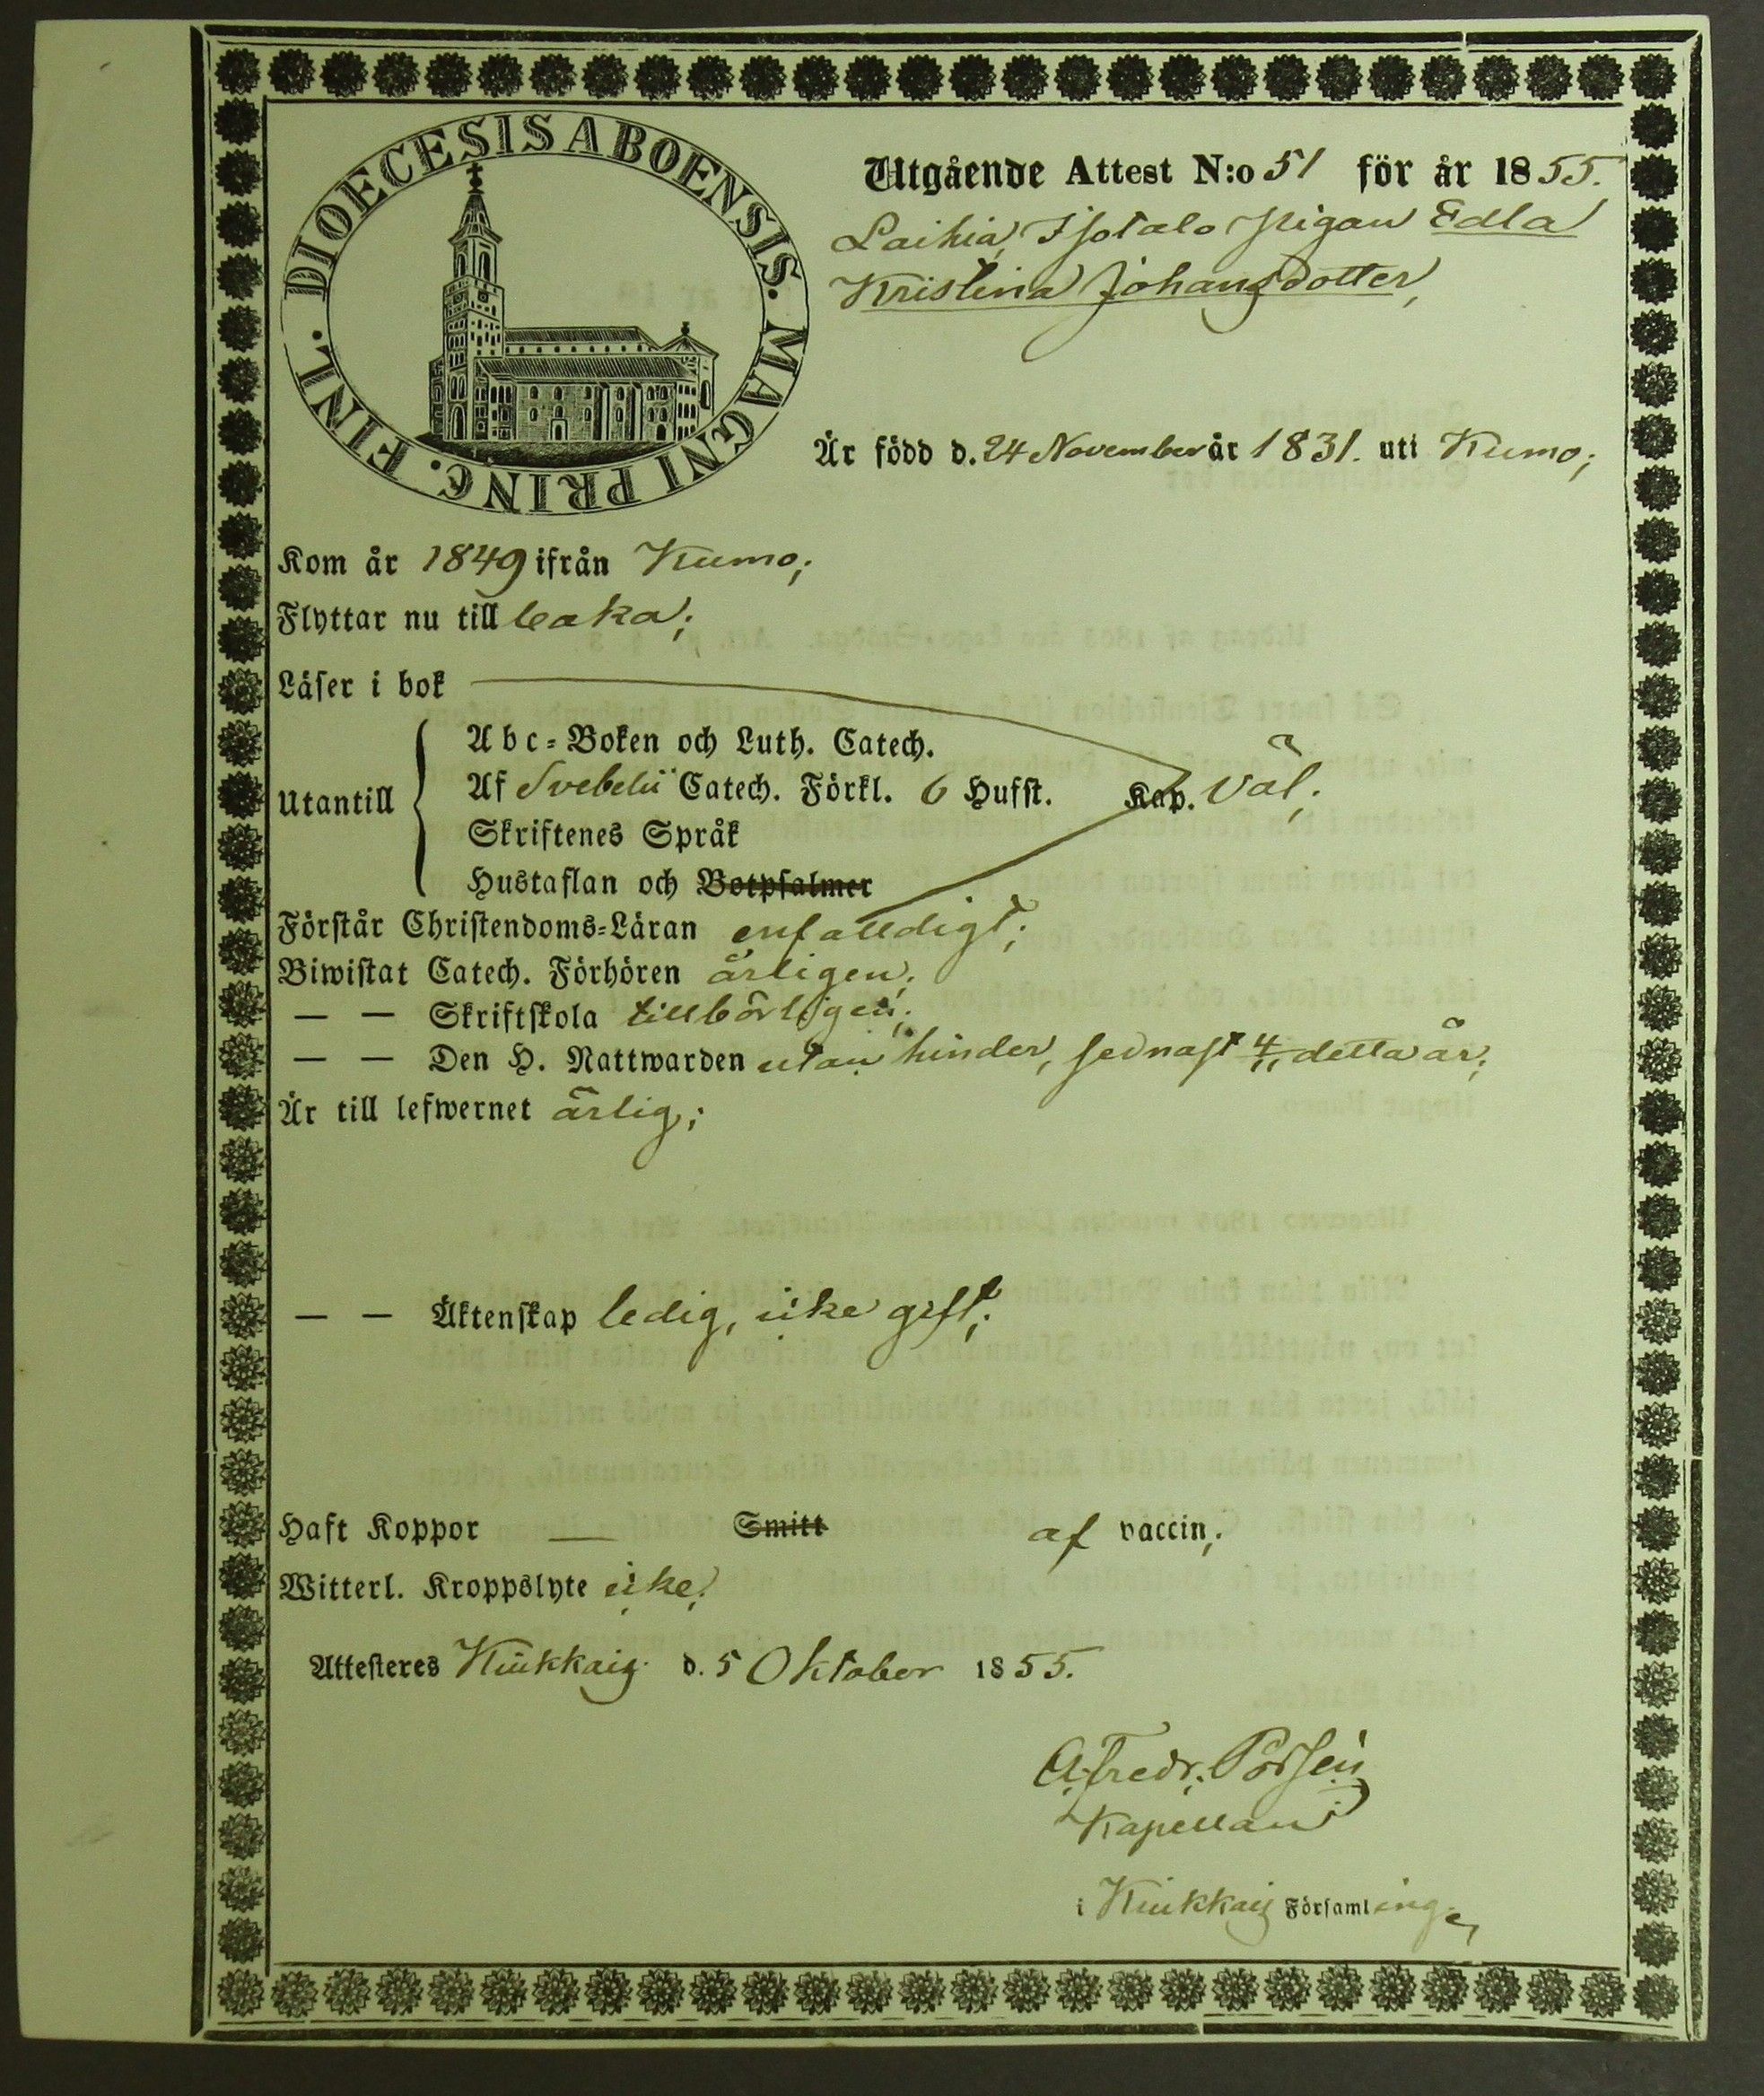 DIOECESIS ABOENSIS. MAGNI PRINC. FINL.
Utgående Attest N:o 51 för år 1855.
Laihia, Isotalo pigan Edla
Kristina Johansdotter,
Är född d. 24 November år 1831. uti Kumo;
Kom år 1849 ifrån Kumo;
Flyttar nu till
Läser i bok
Abc-Boken och Luth. Catech.
Utantill
Af Svebelii Catech. Förkl. 6 Hufst. Kap. väl;
Skriftenes Språk
Hustaflan och Botpsalmer
Förstår Christendoms-Läran enfalldigt;
Biwistat Catech. Förhören årligen;
— — Skriftskola tillbörligen;
— — Den H. Nattwarden utan hinder, sednast detta år;
Är till lefwernet ärlig;
— — Äktenskap ledig, icke gift;
Haft Koppor — Smitt af vaccin;
Witterl. Kroppslyte icke;
Attesteres Kiukkais d. 5 Oktober 1855.
A. Fredr. Porsén
Kapellan
i Kiukkais Församling